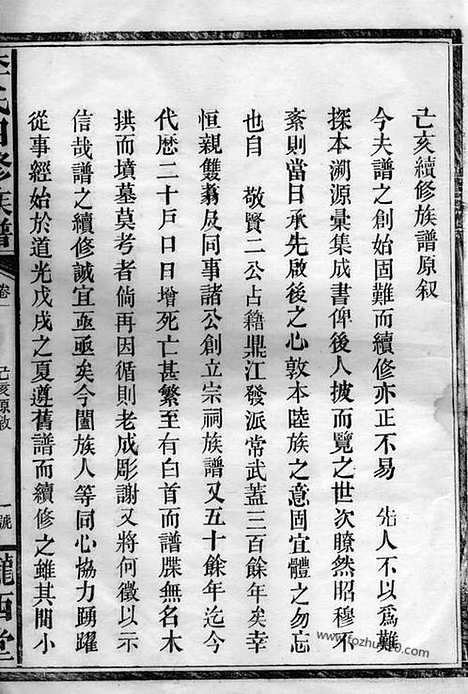 己亥續修族譜原叙
今夫譜之創始固難而續修亦正不易 先人不以爲難
探本溯源彙集成書俾後人披而覽之世次瞭然昭穆不
紊則當日承先啟後之心敦本陸族之意固宜體之勿忘
也自 敬賢二公占籍鼎江發派常武蓋三百餘年矣幸
恒親雙翥及同事諸公創立宗祠族譜又五十餘年迄今
代歷二十戶口日增死亡甚繁至有白首而譜牒無名木
拱而墳墓莫考者倘再因循則老成彫謝又將何徵以示
信哉譜之續修誠宜亟亟矣今闔族人等同心協力踴躍
從事經始於道光戊戌之夏遵舊譜而續修之雖其間小
李氏四修族譜
卷一
己亥原敘
一號
隴西堂
www.fozhu920.com